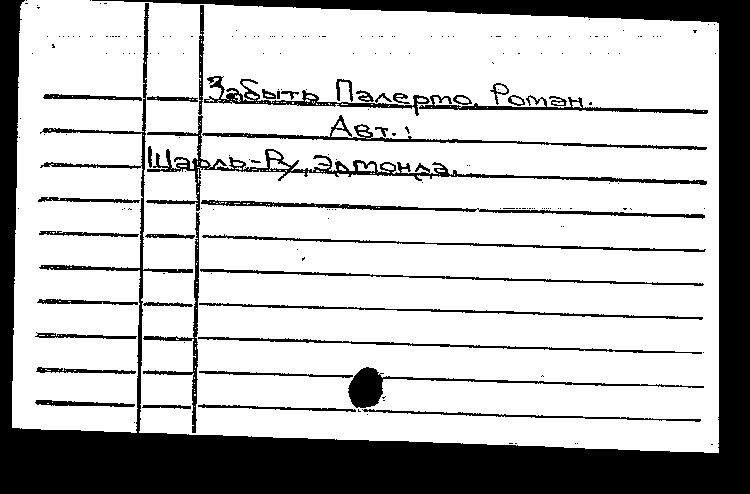 Забыть Палермо. Роман.
Авт.:
Шарль-Ру, Эдмонда.